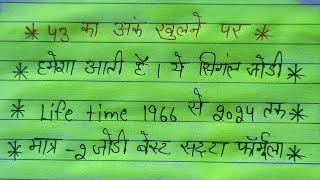 * ५३ का अंक खुलने पर *
* हमेशा आती हैं। ये सिगंल जोडी *
* Life time 1966 से २०२५ तक *
* मात्र - २ जोडी बेस्ट सट्टा फॉर्मूला *